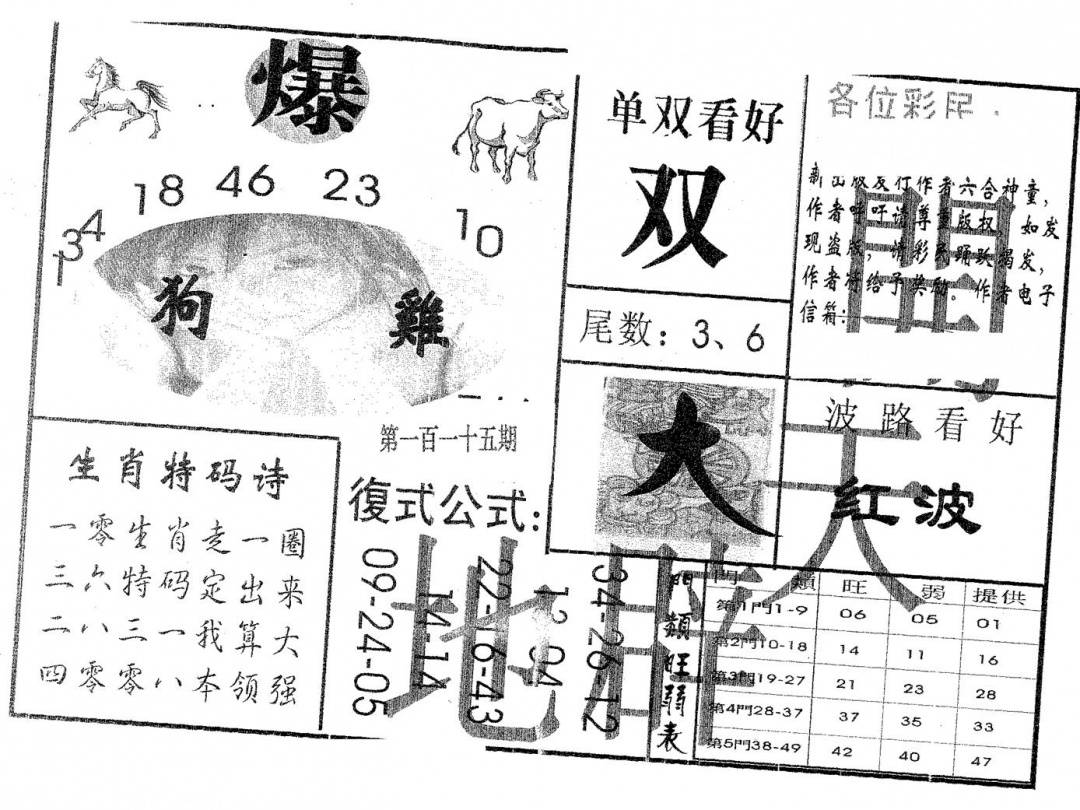 爆
18 46 23
34
1
10
狗 雞
生肖特码诗
一零生肖走一圈
三六特码定出来
二八三一我算大
四零零八本领强
第一百一十五期
復式公式:
09-24-05
14-14
22-16-43
34-26-12
单双看好
双
尾数：3、6
大
各位彩民
作者六合神童，
作者呼吁请尊重版权，如发
现盗版，请彩民踊跃揭发，
作者将给予奖励。作者电子
信箱：
波路看好
红波
門類旺弱表
門類 旺 弱 提供
第1門1-9 06 05 01
第2門10-18 14 11 16
第3門19-27 21 23 28
第4門28-37 37 35 33
第5門38-49 42 40 47